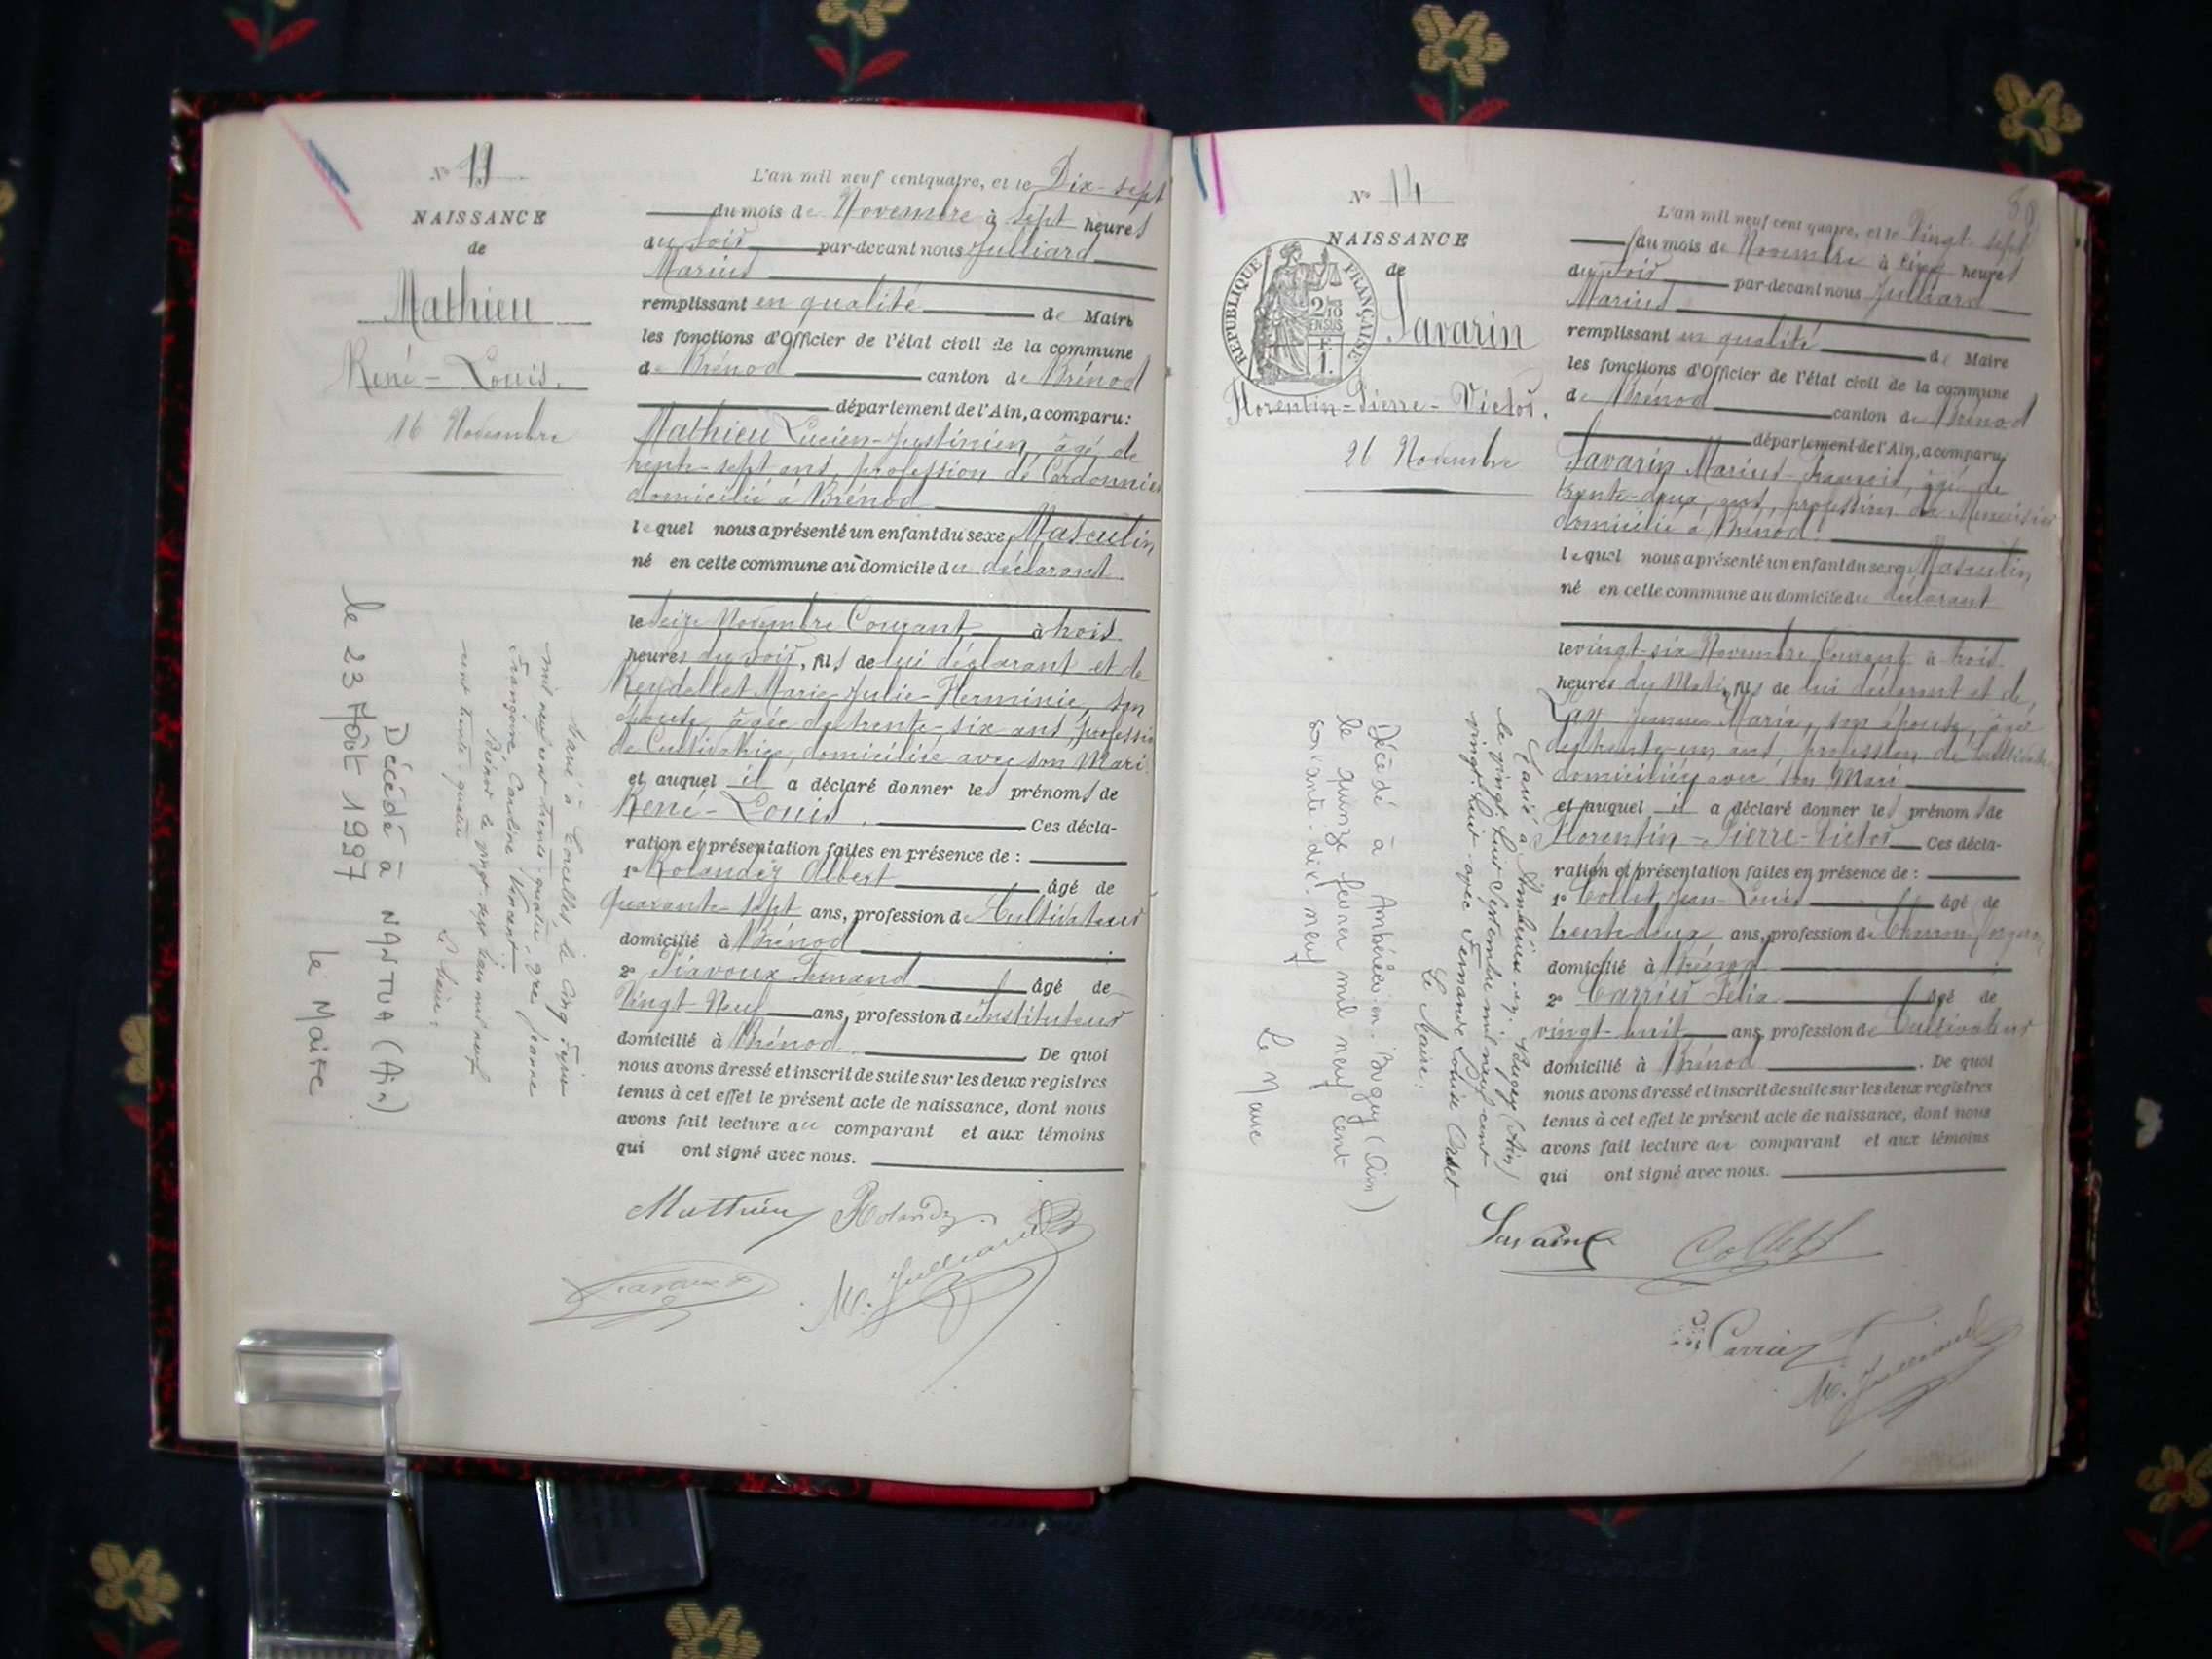 N° 13
NAISSANCE
de
Mathieu
René-Louis.
16 Novembre
L'an mil neuf cent quatre, et le Dix-sept
du mois de Novembre à Sept heures
du soir par-devant nous Julliard
Marius
remplissant en qualité de Maire
les fonctions d'Officier de l'état civil de la commune
de Brénod canton de Brénod
département de l'Ain, a comparu:
Mathieu Lucien-Justinien, âgé de
trente-sept ans, profession de Cordonnier
domicilié à Brénod
lequel nous a présenté un enfant du sexe Masculin
né en cette commune au domicile du déclarant
le Seize Novembre Courant à trois
heures du soir, fils de lui déclarant et de
Reydellet Marie-Julie-Herminie, son
épouse, âgée de trente-six ans, profession
de Cultivatrice, domiciliée avec son Mari
et auquel il a déclaré donner les prénoms de
René-Louis. Ces décla-
ration et présentation faites en présence de :
1° Rolandez Albert âgé de
quarante-sept ans, profession de Cultivateur
domicilié à Brénod
2° Piavoux Fernand âgé de
Vingt-Neuf ans, profession d'instituteur
domicilié à Brénod. De quoi
nous avons dressé et inscrit de suite sur les deux registres
tenus à cet effet le présent acte de naissance, dont nous
avons fait lecture au comparant et aux témoins
qui ont signé avec nous.
Mathieu Rolandez
M. Julliard
Marié à Corcelles le cinq
mil neuf cent trente quatre avec Jeanne
Caroline Vincent
Brénod le vingt mil neuf
cent trente quatre
Le Maire:
Décédé à NANTUA (Ain)
le 23 Août 1997
Le Maire
N° 14
NAISSANCE
de
RÉPUBLIQUE FRANÇAISE
2/10
EN SUS
F.
1.
Savarin
Florentin-Pierre-Victor.
26 Novembre
L'an mil neuf cent quatre, et le Vingt-sept
du mois de Novembre à cinq heures
du soir par-devant nous Julliard
Marius
remplissant en qualité de Maire
les fonctions d'Officier de l'état civil de la commune
de Brénod canton de Brénod
département de l'Ain, a comparu,
Savarin Marius-François, âgé de
trente-deux ans, profession de Menuisier
domicilié à Brénod.
lequel nous a présenté un enfant du sexe Masculin
né en cette commune au domicile du déclarant
le vingt-six Novembre Courant à trois
heures du Matin, fils de lui déclarant et de
Jeanne Marie, son épouse, âgée
de trente-un ans, profession de Cultivatrice
domiciliée avec son Mari
et auquel il a déclaré donner les prénoms de
Florentin-Pierre-Victor Ces décla-
ration et présentation faites en présence de :
1° Collet Jean-Louis âgé de
trente-deux ans, profession de Charron-forgeron
domicilié à Brénod
2° Carrier Félix âgé de
vingt-huit ans, profession de Cultivateur
domicilié à Brénod. De quoi
nous avons dressé et inscrit de suite sur les deux registres
tenus à cet effet le présent acte de naissance, dont nous
avons fait lecture au comparant et aux témoins
qui ont signé avec nous.
Savarin Collet
Carrier
M. Julliard
Marié à Ambérieu-en-Bugey (Ain)
le vingt-huit Septembre mil neuf cent
vingt-huit avec Fernande Louise Ordet
Le Maire:
Décédé à Ambérieu-en-Bugey (Ain)
le quinze février mil neuf cent
soixante-dix-neuf
Le Maire